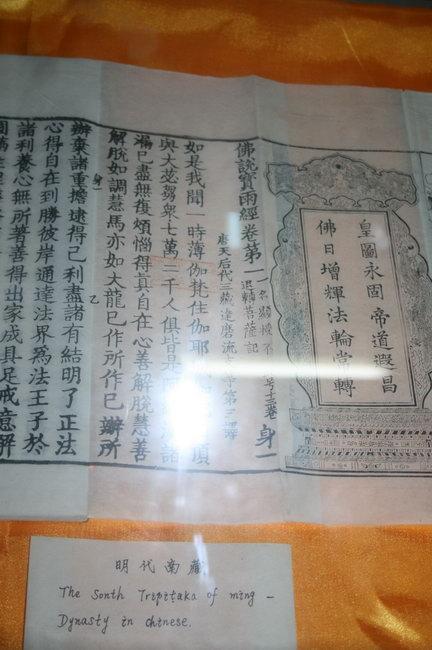 皇圖永固帝道遐昌
佛日增輝法輪常轉
佛說寶雨經卷第一
名顯授不
退轉菩薩記
唐天后代三藏達磨流支等第三譯
身一
如是我聞一時薄伽梵住伽耶 頂
與大苾芻衆七萬二千人俱皆是阿 諸
漏已盡無復煩惱得真自在心善解脫慧善
解脫如調慧馬亦如大龍已作所作已辦所
辦棄諸重擔逮得己利盡諸有結明了正法
心得自在到勝彼岸通達法界爲法王子於
諸利養心無所著善得出家成具足戒意解
明代南藏
The Sonth Tripiṭaka of ming -
Dynasty in chinese.